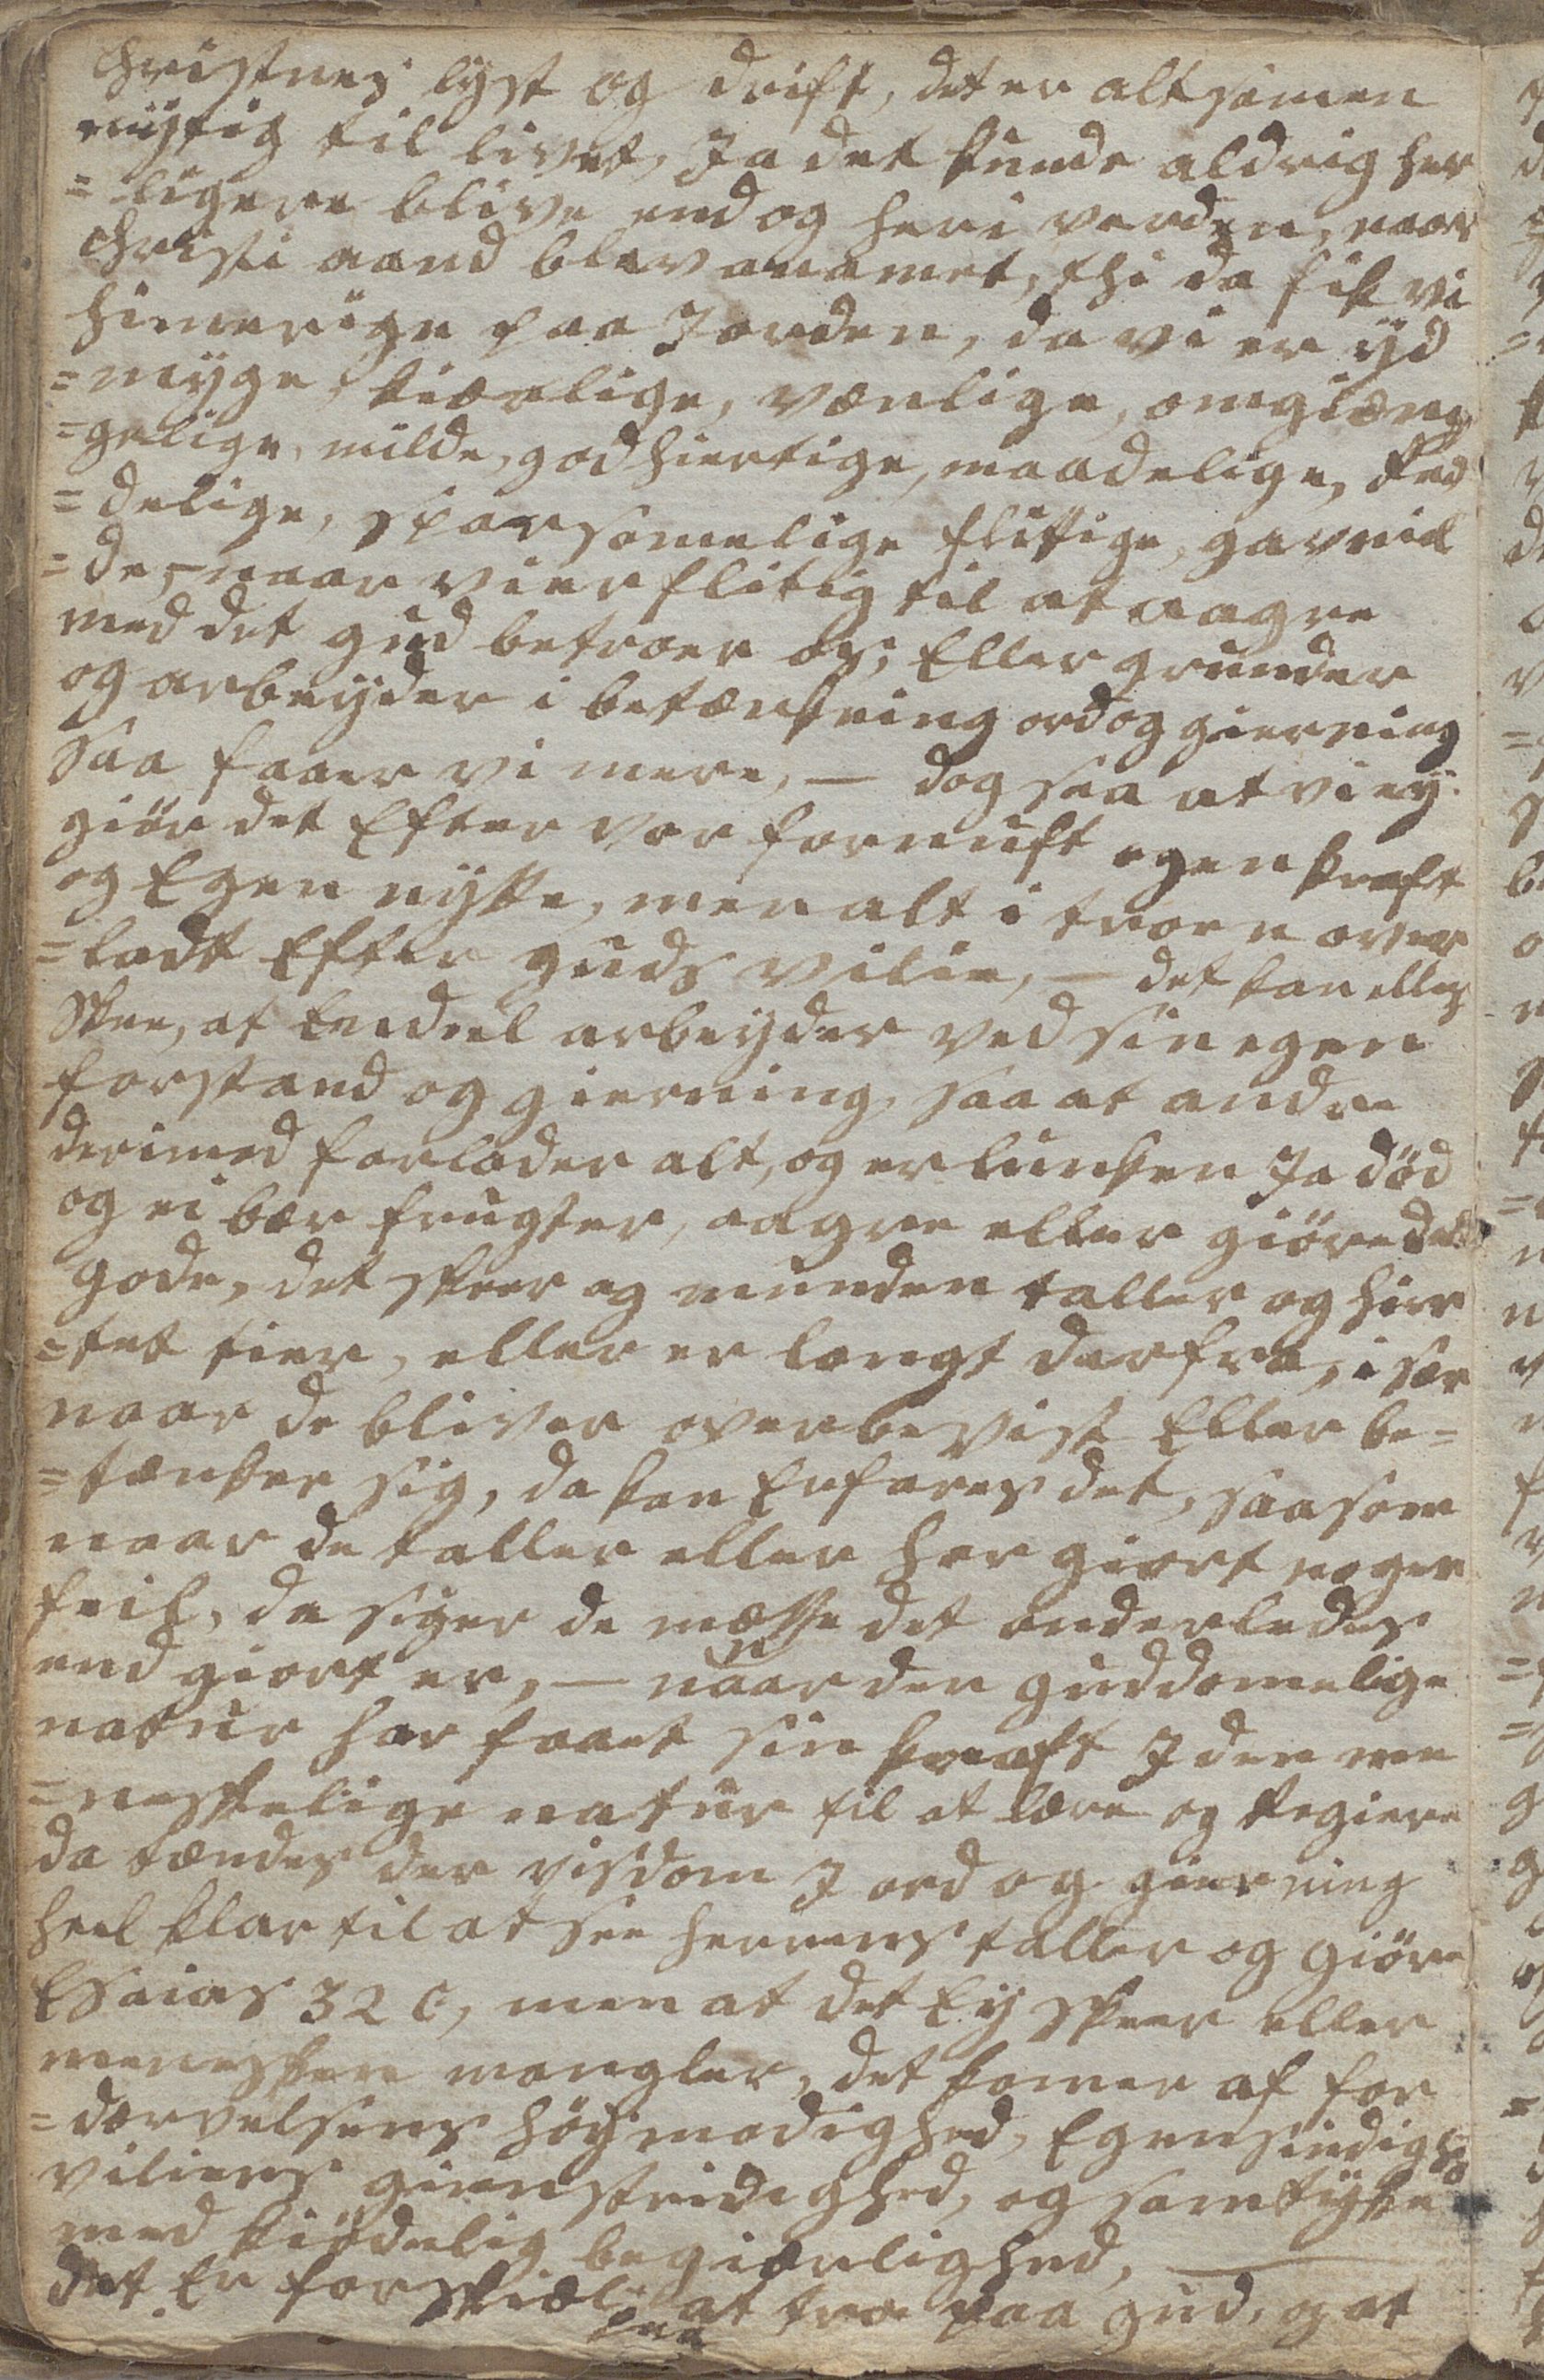 Christnes lyst og drift, det er altsamen
nÿttig til livet, Ja det kunde aldrig her
=ligere blive end og her i verden, naar
Christi aand blev anamet, thi da fik vi
himerige paa Jorden, da vi er ÿd
=mÿge, kiærlige, vænlige, omgiæng
=gelige, milde, godhiertige, maadelige, fred
=delige, sparsomelige flittige, gavmil
=de, – naar vi er flitig til at aagre
med det gud betroer os; Eller grunder
og arbeÿder i betænkning ord og gierning
saa faaer vi mere, — dog saa at vi eÿ
giör det Efter vor fornuft egen kraft
og Egen nÿtte, men alt i troen over
=ladt Efter guds vilie, — det kan ellers
Skee, at Endeel arbeÿder ved sin egen
forstand og gierning, saa at andre
derimod forlader alt, og er lunken Ja död
og ei bær frugter, aagre eller giöre det
gode, det skeer og munden taller og hier
=tet tier, eller er langt derfra, i sær
naar de bliver overbevist Eller be=
=tænker sig, da kan Erfares det, saasom
naar de taller eller har giort noger
feil, da siger de mötte det anderledes
end giort er, — naar den guddomelige
natur har faaet sin kraft J den me
=neskelige natur til at lære og Regiere
da tændes der visdom J ord og gierning
heel klar til at see herrens taller og giöre
Esaias 32 C, men at det Eÿ skeer eller
menesken mangler, det komer af for
=dærvelsens höÿmodighed, Egensindighed
viliens gienstridighed, og samtÿke
med kiödelig begiærlighed, —
det Er forskiæl paa at tro paa gud, og at